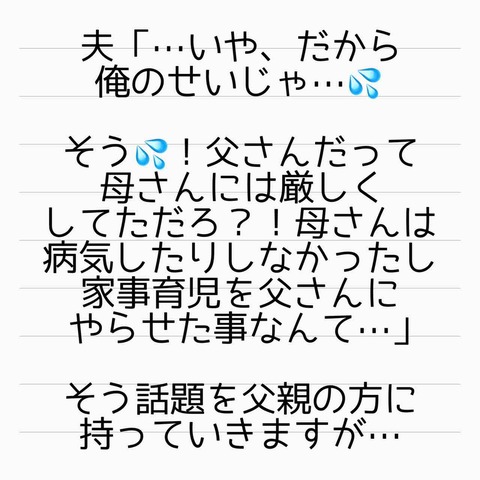 夫「…いや、だから
俺のせいじゃ…💦
そう💦！父さんだって
母さんには厳しく
してただろ？！母さんは
病気したりしなかったし
家事育児を父さんに
やらせた事なんて…」
そう話題を父親の方に
持っていきますが…